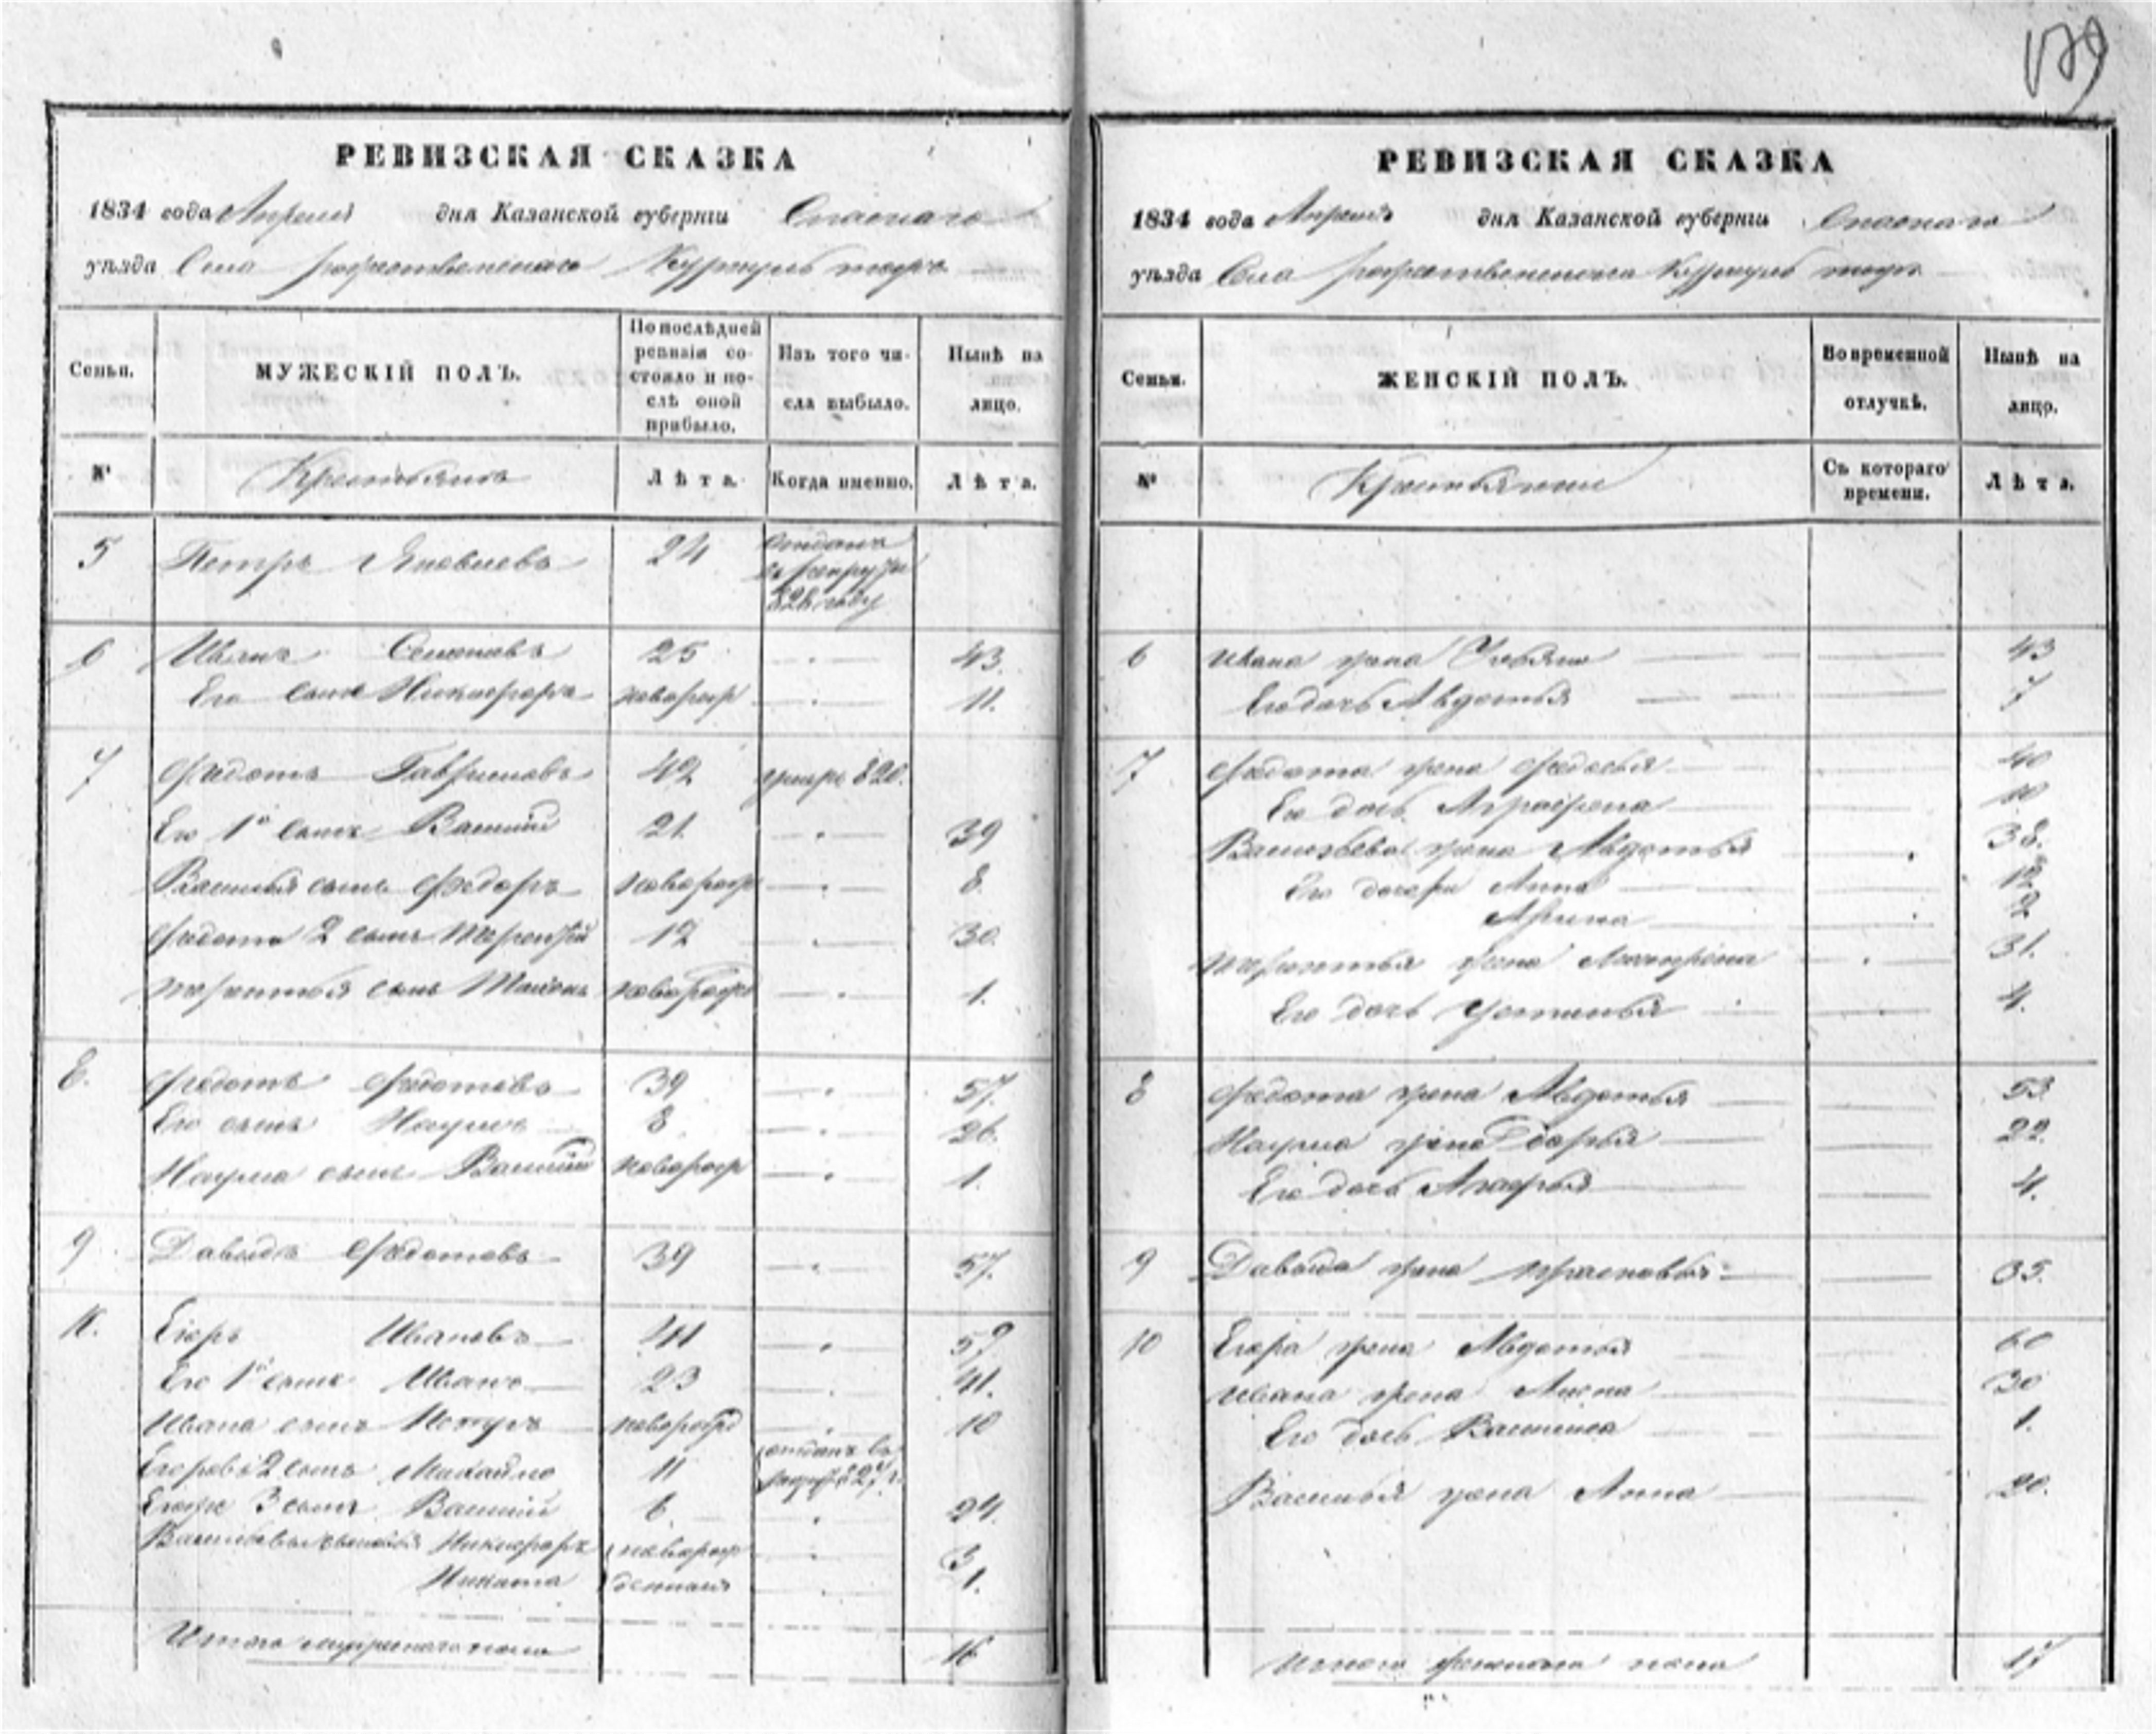 179
РЕВИЗСКАЯ СКАЗКА
1834 года Апреля дня Казанской губерніи Спаскаго
уѣзда Села Рождественскаго Куркуль тожъ
Семьи.
МУЖЕСКІЙ ПОЛЪ.
По послѣдней
ревизіи со-
стояло и по-
слѣ оной
прибыло.
Изъ того чи-
сла выбыло.
Нынѣ на
лицо.
№
Крестьянъ
Лѣта.
Когда именно.
Лѣта.
5 Петръ Яковлевъ 24 отданъ
въ рекруты
826 году
6 Иванъ Семеновъ 25 43
Его сынъ Никифоръ новорож 11.
7 Федотъ Гавриловъ 42 умре 820.
Его 1й сынъ Василий 21. 39
Василья сынъ Федоръ новорож 8.
Федота 2 сынъ Терентей 12 30.
Терентья сынъ новорож 1.
8. Федотъ Федотовъ 39 57.
Его сынъ Наумъ 8 26.
Наума сынъ Василий новорож 1.
9 Давыдъ Федотовъ 39 57.
10. Егоръ Ивановъ 41 59
Его 1й сынъ Иванъ 23 41.
Ивана сынъ новорож 10
Егоровъ 2 сынъ Михайло 11 отданъ въ
рекруты 827 г.
Егора 3 сынъ Василий 6. 24.
Васильевы сыновья Никифоръ новорож 3
Никита денныя 1.
Итого мужескаго пола 16
РЕВИЗСКАЯ СКАЗКА
1834 года Апреля дня Казанской губерніи Спаскаго
уѣзда Села Рождественскаго Куркуль тожъ
Семьи.
ЖЕНСКІЙ ПОЛЪ.
Во временной
отлучкѣ.
Нынѣ на
лицо.
№
Крестьянки
Съ котораго
времени.
Лѣта.
6 Ивана жена Ульяна 43
Его дочь Авдотья 7
7 Федота жена Федосья 40
Его дочь Аграфена 10
Васильева жена Авдотья 38.
Его дочери Анна 12
Арина 2
Терентья жена 31.
Его дочь Устинья 4.
8 Федота жена Авдотья 53
Наума жена Дарья 22.
Его дочь Агафья 4.
9 Давыда жена Прасковья 35.
10 Егора жена Авдотья 60
Ивана жена 30
Его дочь Василиса 1.
Василья жена Анна 20.
Итого женскаго пола 17